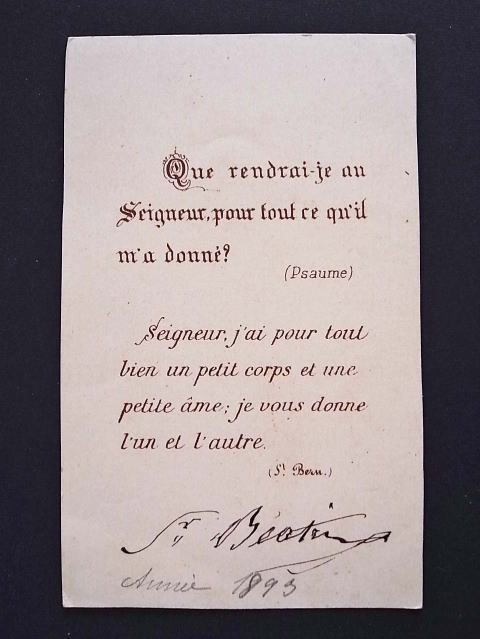 Que rendrai-je au
Seigneur, pour tout ce qu'il
m'a donné?
(Psaume)
Seigneur, j'ai pour tout
bien un petit corps et une
petite âme; je vous donne
l'un et l'autre.
(St Bern.)
Sr
Année 1893